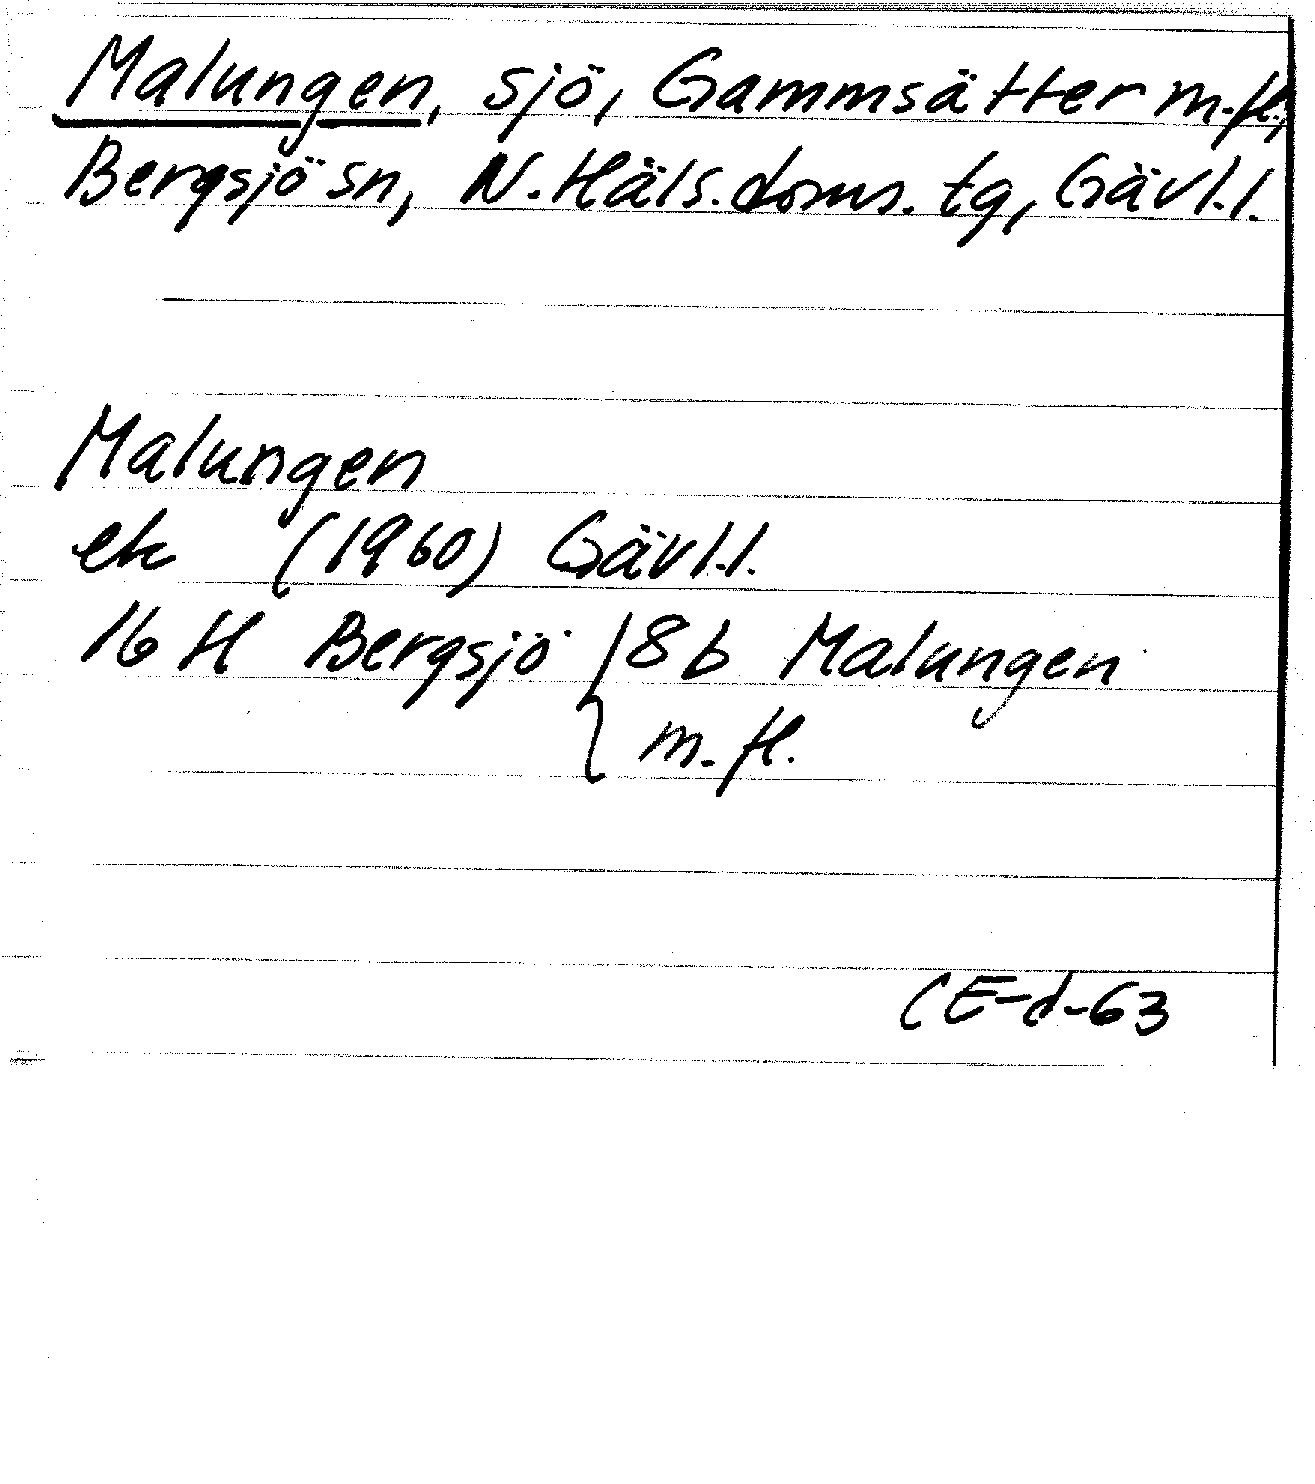 Malungen, sjö, Gammsätter m.fl.,
Bergsjö sn, N. Häls. doms. tg, Gävl.l.
Malungen
ek (1960) Gävl.l.
16 H Bergsjö 8b Malungen
m.fl.
CE-d-63